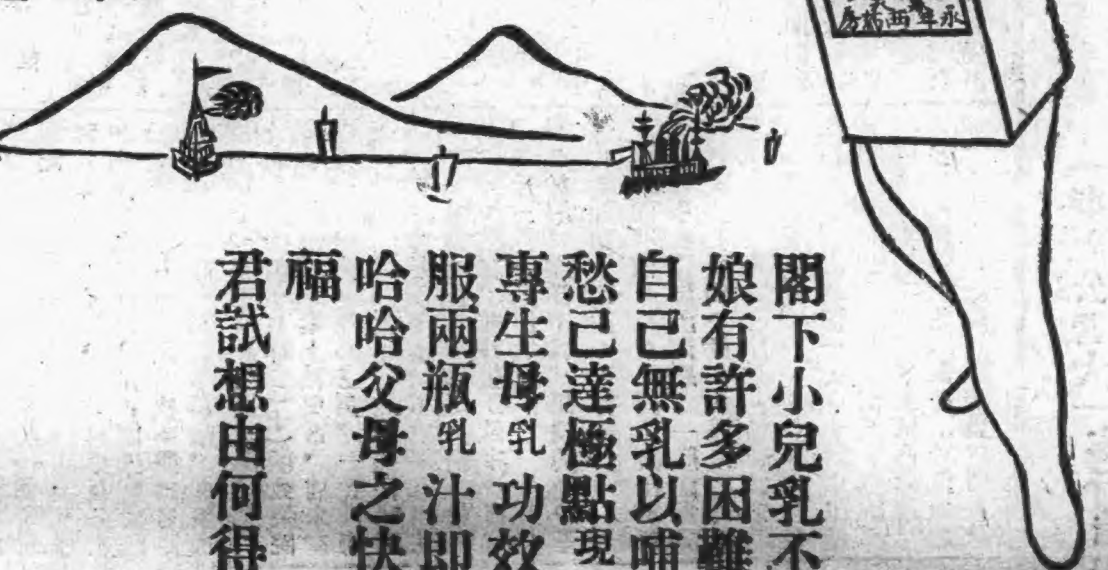 永年西藥房
閣下小兒乳不
娘有許多困難
自己無乳以哺
愁己達極點現
專生母乳功效
服兩瓶乳汁即
哈哈父母之快
福
君試想由何得